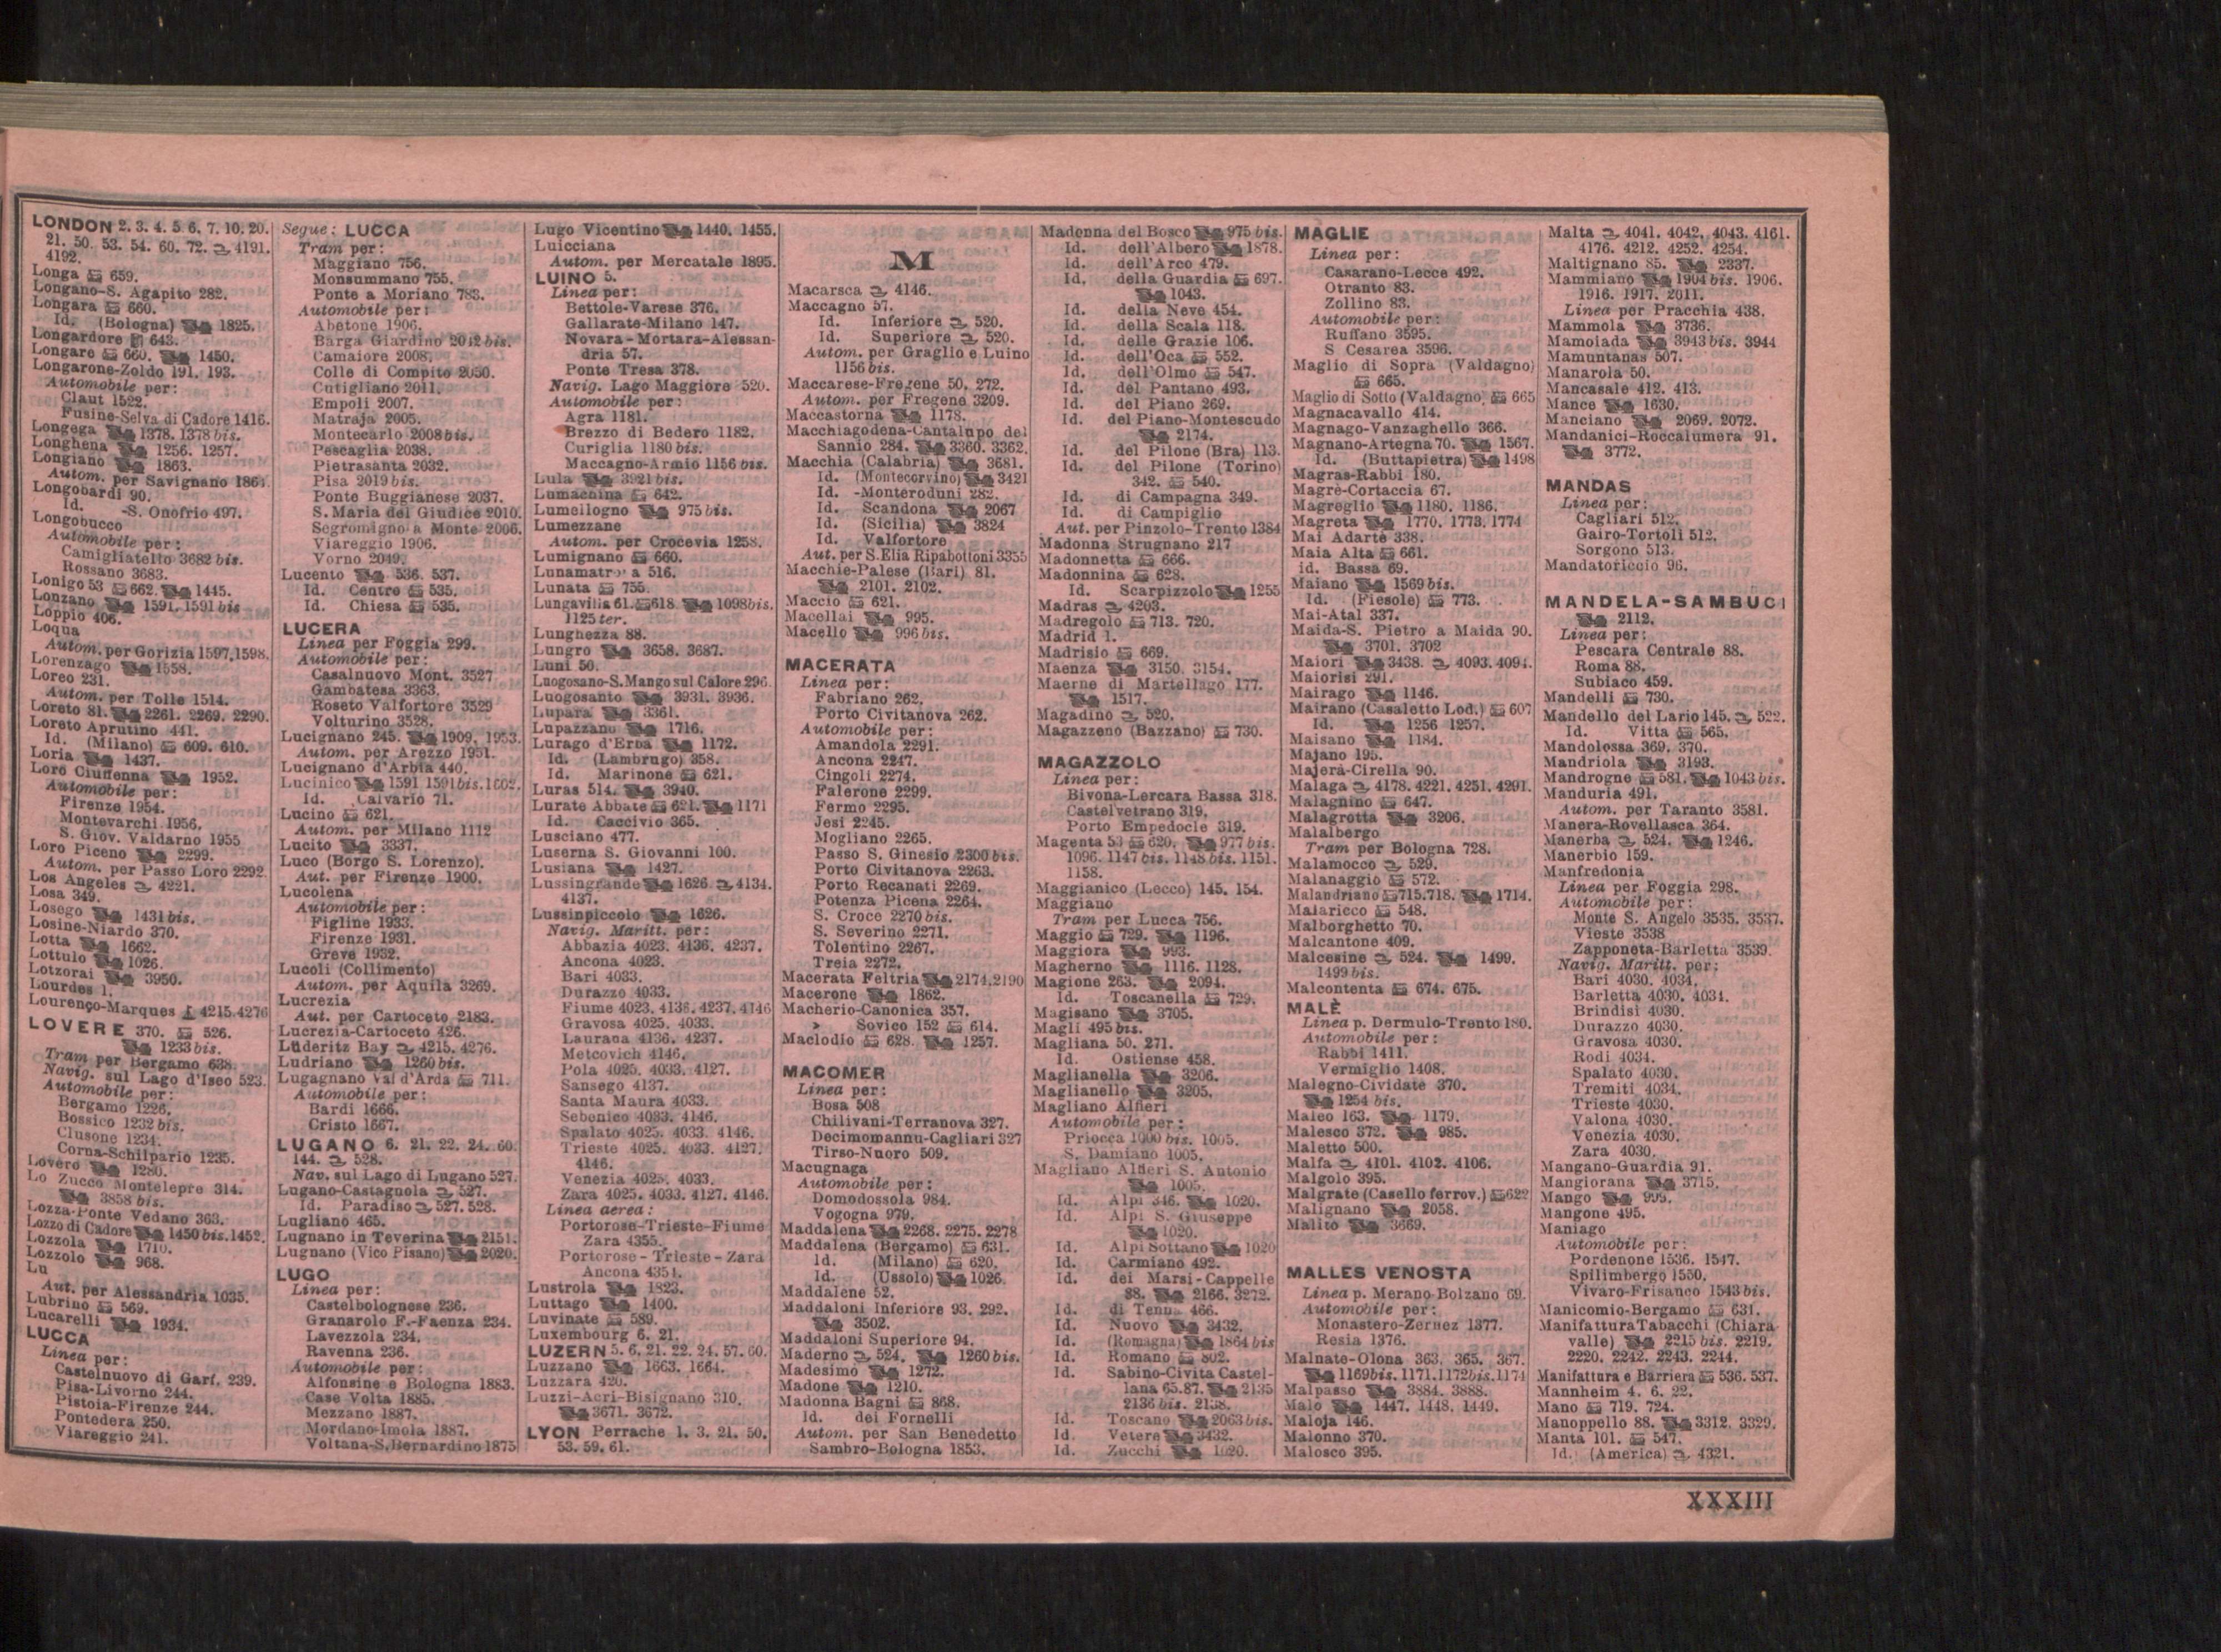 LONDON 2. 3. 4. 5. 6. 7. 10. 20.
21. 50. 53. 54. 60. 72. 4191.
4192.
Longa 659.
Longano-S. Agapito 282.
Longara 660.
Id. (Bologna) 1825.
Longardore 643.
Longare 660. 1450.
Longarone-Zoldo 191. 193.
Automobile per:
Claut 1522.
Fusine-Selva di Cadore 1416.
Longega 1378. 1378 bis.
Longhena 1256. 1257.
Longiano 1863.
Autom. per Savignano
Longobardi 90.
Id. -S. Onofrio 497.
Longobucco
Automobile per:
Camigliatello 3682 bis.
Rossano 3683.
Lonigo 53 662. 1445.
Lonzano 1591. 1591 bis
Loppio 406.
Loqua
Autom. per Gorizia 1597. 1598.
Lorenzago 1558.
Loreo 231.
Autom. per Tolle 1514.
Loreto 81. 2261. 2269. 2290.
Loreto Aprutino 441.
Id. (Milano) 609. 610.
Loria 1437.
Loro Ciuffenna 1952.
Automobile per:
Firenze 1954.
Montevarchi 1956.
S. Giov. Valdarno 1955
Loro Piceno 2299.
Autom. per Passo Loro 2292.
Los Angeles 4221.
Losa 349.
Losego 1431 bis.
Losine-Niardo 370.
Lotta 1662.
Lottulo 1026.
Lotzorai 3950.
Lourdes 1.
Lourenço-Marques 4215. 4276
LOVERE 370. 526.
1233 bis.
Tram per Bergamo 638.
Navig. sul Lago d'Iseo 523.
Automobile per:
Bergamo 1226.
Bossico 1232 bis.
Clusone 1234.
Corna-Schilpario 1235.
Lovero 1280.
Lo Zucco Montelepre 314.
3858 bis.
Lozza-Ponte Vedano 363.
Lozzo di Cadore 1450 bis. 1452.
Lozzola 1710.
Lozzolo 968.
Lu
Aut. per Alessandria 1035.
Lubrino 569.
Lucarelli 1934.
LUCCA
Linea per:
Castelnuovo di Garf. 239.
Pisa-Livorno 244.
Pistoia-Firenze 244.
Pontedera 250.
Viareggio 241.
Segue: LUCCA
Tram per:
Maggiano 756.
Monsummano 755.
Ponte a Moriano 783.
Automobile per:
Abetone 1906.
Barga Giardino 2012 bis.
Camaiore 2008.
Colle di Compito 2050.
Cutigliano 2011.
Empoli 2007.
Matraja 2005.
Montecarlo 2008 bis.
Pescaglia 2038.
Pietrasanta 2032.
Pisa 2019 bis.
Ponte Buggianese 2037.
S. Maria del Giudice 2010.
Segromigno a Monte 2006.
Viareggio 1906.
Vorno 2049.
Lucento 536. 537.
Id. Centro 535.
Id. Chiesa 535.
LUCERA
Linea per Foggia 299.
Automobile per:
Casalnuovo Mont. 3527
Gambatesa 3363.
Roseto Valfortore 3529
Volturino 3528.
Lucignano 245. 1909. 1953.
Autom. per Arezzo 1951.
Lucignano d'Arbia 440.
Lucinico 1591 1591 bis. 1602.
Id. Calvario 71.
Lucino 621.
Autom. per Milano 1112
Lucito 3337.
Luco (Borgo S. Lorenzo).
Aut. per Firenze 1900.
Lucolena
Automobile per:
Figline 1933.
Firenze 1931.
Greve 1932.
Lucoli (Collimento)
Autom. per Aquila 3269.
Lucrezia
Aut. per Cartoceto 2183.
Lucrezia-Cartoceto 426.
Lüderitz Bay 4215. 4276.
Ludriano 1260 bis.
Lugagnano Val d'Arda 711.
Automobile per:
Bardi 1666.
Cristo 1667.
LUGANO 6. 21. 22. 24. 60.
144. 528.
Nav. sul Lago di Lugano 527.
Lugano-Castagnola 527.
Id. Paradiso 527. 528.
Lugliano 465.
Lugnano in Teverina 2151.
Lugnano (Vico Pisano) 2020.
LUGO
Linea per:
Castelbolognese 236.
Granarolo F.-Faenza 234.
Lavezzola 234.
Ravenna 236.
Automobile per:
Alfonsine e Bologna 1883.
Case Volta 1885.
Mezzano 1887.
Mordano-Imola 1887.
Voltana-S. Bernardino 1875
Lugo Vicentino 1440. 1455.
Luicciana
Autom. per Mercatale 1895.
LUINO 5.
Linea per:
Bettole-Varese 376.
Gallarate-Milano 147.
Novara-Mortara-Alessan-
dria 57.
Ponte Tresa 378.
Navig. Lago Maggiore 520.
Automobile per:
Agra 1181.
Brezzo di Bedero 1182.
Curiglia 1180 bis.
Maccagno-Armio 1156 bis.
Lula 3921 bis.
Lumachina 642.
Lumellogno 975 bis.
Lumezzane
Autom. per Crocevia 1258.
Lumignano 660.
Lunamatrona 516.
Lunata 755.
Lungavilla 61. 618. 1098 bis.
1125 ter.
Lunghezza 88.
Lungro 3658. 3687.
Luni 50.
Luogosano-S. Mango sul Calore 296.
Luogosanto 3931. 3936.
Lupara 3361.
Lupazzano 1716.
Lurago d'Erba 1172.
Id. (Lambrugo) 358.
Id. Marinone 621.
Luras 514. 3940.
Lurate Abbate 621. 1171
Id. Caccivio 365.
Lusciano 477.
Luserna S. Giovanni 100.
Lusiana 1427.
Lussingrande 1626 4134.
4137.
Lussinpiccolo 1626.
Navig. Maritt. per:
Abbazia 4023. 4136. 4237.
Ancona 4023.
Bari 4033.
Durazzo 4033.
Fiume 4023. 4136. 4237. 4146
Gravosa 4025. 4033.
Laurana 4136. 4237.
Metcovich 4146.
Pola 4025. 4033. 4127.
Sansego 4137.
Santa Maura 4033.
Sebenico 4033. 4146.
Spalato 4025. 4033. 4146.
Trieste 4025. 4033. 4127.
4146.
Venezia 4025. 4033.
Zara 4025. 4033. 4127. 4146.
Linea aerea:
Portorose-Trieste-Fiume
Zara 4355.
Portorose-Trieste-Zara
Ancona 4351.
Lustrola 1823.
Luttago 1400.
Luvinate 589.
Luxembourg 6. 21.
LUZERN 5. 6. 21. 22. 24. 57. 60.
Luzzano 1663. 1664.
Luzzara 420.
Luzzi-Acri-Bisignano 310.
3671. 3672.
LYON Perrache 1. 3. 21. 50.
53. 59. 61.
M
Macarsca 4146.
Maccagno 57.
Id. Inferiore 520.
Id. Superiore 520.
Autom. per Graglio e Luino
1156 bis.
Maccarese-Fregene 50. 272.
Autom. per Fregene 3209.
Maccastorna 1178.
Macchiagodena-Cantalupo del
Sannio 284. 3360. 3362.
Macchia (Calabria) 3681.
Id. (Montecorvino) 3421
Id. -Monteroduni 282.
Id. Scandona 2067
Id. (Sicilia) 3824
Id. Valfortore
Aut. per S. Elia Ripabottoni 3355
Macchie-Palese (Bari) 81.
2101. 2102.
Maccio 621.
Macellai 995.
Macello 996 bis.
MACERATA
Linea per:
Fabriano 262.
Porto Civitanova 262.
Automobile per:
Amandola 2291.
Ancona 2247.
Cingoli 2274.
Falerone 2299.
Fermo 2295.
Jesi 2245.
Mogliano 2265.
Passo S. Ginesio 2300 bis.
Porto Civitanova 2263.
Porto Recanati 2269.
Potenza Picena 2264.
S. Croce 2270 bis.
S. Severino 2271.
Tolentino 2267.
Treia 2272.
Macerata Feltria 2174. 2190
Macerone 1862.
Macherio-Canonica 357.
» Sovico 152 614.
Maclodio 628. 1257.
MACOMER
Linea per:
Bosa 508
Chilivani-Terranova 327.
Decimomannu-Cagliari 327
Tirso-Nuoro 509.
Macugnaga
Automobile per:
Domodossola 984.
Vogogna 979.
Maddalena 2268. 2275. 2278
Maddalena (Bergamo) 631.
Id. (Milano) 620.
Id. (Ussolo) 1026.
Maddalene 52.
Maddaloni Inferiore 93. 292.
3502.
Maddaloni Superiore 94.
Maderno 524. 1260 bis.
Madesimo 1272.
Madone 1210.
Madonna Bagni 868.
Id. dei Fornelli
Autom. per San Benedetto
Sambro-Bologna 1853.
Madonna del Bosco 975 bis.
Id. dell'Albero 1878.
Id. dell'Arco 479.
Id. della Guardia 697.
1043.
Id. della Neve 454.
Id. della Scala 118.
Id. delle Grazie 106.
Id. dell'Oca 552.
Id. dell'Olmo 547.
Id. del Pantano 493.
Id. del Piano 269.
Id. del Piano-Montescudo
2174.
Id. del Pilone (Bra) 113.
Id. del Pilone (Torino)
342. 540.
Id. di Campagna 349.
Id. di Campiglio
Aut. per Pinzolo-Trento 1384
Madonna Strugnano 217
Madonnetta 666.
Madonnina 628.
Id. Scarpizzolo 1255
Madras 4203.
Madregolo 713. 720.
Madrid 1.
Madrisio 669.
Maenza 3150. 3154.
Maerne di Martellago 177.
1517.
Magadino 520.
Magazzeno (Bazzano) 730.
MAGAZZOLO
Linea per:
Bivona-Lercara Bassa 318.
Castelvetrano 319.
Porto Empedocle 319.
Magenta 53 620. 977 bis.
1096. 1147 bis. 1148 bis. 1151.
1158.
Maggianico (Lecco) 145. 154.
Maggiano
Tram per Lucca 756.
Maggio 729. 1196.
Maggiora 993.
Magherno 1116. 1128.
Magione 263. 2094.
Id. Toscanella 729.
Magisano 3705.
Magli 495 bis.
Magliana 50. 271.
Id. Ostiense 458.
Maglianella 3206.
Maglianello 3205.
Magliano Alfieri
Automobile per:
Priocca 1000 bis. 1005.
S. Damiano 1005.
Magliano Alfieri S. Antonio
1005.
Id. Alpi 346. 1020.
Id. Alpi S. Giuseppe
1020.
Id. Alpi Sottano 1020
Id. Carmiano 492.
Id. dei Marsi-Cappelle
88. 2166. 3272.
Id. di Tenna 466.
Id. Nuovo 3432.
Id. (Romagna) 1864 bis
Id. Romano 802.
Id. Sabino-Civita Castel-
lana 65. 87. 2135
2136 bis. 2138.
Id. Toscano 2063 bis.
Id. Vetere 3432.
Id. Zucchi 1020.
MAGLIE
Linea per:
Casarano-Lecce 492.
Otranto 83.
Zollino 83.
Automobile per:
Ruffano 3595.
S Cesarea 3596.
Maglio di Sopra (Valdagno)
665.
Maglio di Sotto (Valdagno) 665
Magnacavallo 414.
Magnago-Vanzaghello 366.
Magnano-Artegna 70. 1567.
Id. (Buttapietra) 1498
Magras-Rabbi 180.
Magrè-Cortaccia 67.
Magreglio 1180. 1186.
Magreta 1770. 1773. 1774
Mai Adarté 338.
Maia Alta 661.
id. Bassa 69.
Maiano 1569 bis.
Id. (Fiesole) 773.
Mai-Atal 337.
Maida-S. Pietro a Maida 90.
3701. 3702
Maiori 3438. 4093. 4094.
Maiorisi 291.
Mairago 1146.
Mairano (Casaletto Lod.) 607
Id. 1256 1257.
Maisano 1184.
Majano 195.
Majerà-Cirella 90.
Malaga 4178. 4221. 4251. 4291.
Malagnino 647.
Malagrotta 3206.
Malalbergo
Tram per Bologna 728.
Malamocco 529.
Malanaggio 572.
Malandriano 715. 718. 1714.
Malaricco 548.
Malborghetto 70.
Malcantone 409.
Malcesine 524. 1499.
1499 bis.
Malcontenta 674. 675.
MALÈ
Linea p. Dermulo-Trento 180.
Automobile per:
Rabbi 1411.
Vermiglio 1408.
Malegno-Cividate 370.
1254 bis.
Maleo 163. 1179.
Malesco 372. 985.
Maletto 500.
Malfa 4101. 4102. 4106.
Malgolo 395.
Malgrate (Casello ferrov.) 622
Malignano 2058.
Malito 3669.
MALLES VENOSTA
Linea p. Merano-Bolzano 69.
Automobile per:
Monastero-Zernez 1377.
Resia 1376.
Malnate-Olona 363. 365. 367.
1169 bis. 1171. 1172 bis. 1174
Malpasso 3884. 3888.
Malo 1447. 1448. 1449.
Maloja 146.
Malonno 370.
Malosco 395.
Malta 4041. 4042. 4043. 4161.
4176. 4212. 4252. 4254.
Maltignano 85. 2337.
Mammiano 1904 bis. 1906.
1916. 1917. 2011.
Linea per Pracchia 438.
Mammola 3736.
Mamoiada 3943 bis. 3944
Mamuntanas 507.
Manarola 50.
Mancasale 412. 413.
Mance 1630.
Manciano 2069. 2072.
Mandanici-Roccalumera 91.
3772.
MANDAS
Linea per:
Cagliari 512.
Gairo-Tortolì 512.
Sorgono 513.
Mandatoriccio 96.
MANDELA-SAMBUCI
2112.
Linea per:
Pescara Centrale 88.
Roma 88.
Subiaco 459.
Mandelli 730.
Mandello del Lario 145. 522.
Id. Vitta 565.
Mandolossa 369. 370.
Mandriola 3193.
Mandrogne 581. 1043 bis.
Manduria 491.
Autom. per Taranto 3581.
Manera-Rovellasca 364.
Manerba 524. 1246.
Manerbio 159.
Manfredonia
Linea per Foggia 298.
Automobile per:
Monte S. Angelo 3535. 3537.
Vieste 3538
Zapponeta-Barletta 3539.
Navig. Maritt. per:
Bari 4030. 4034.
Barletta 4030. 4034.
Brindisi 4030.
Durazzo 4030.
Gravosa 4030.
Rodi 4034.
Spalato 4030.
Tremiti 4034.
Trieste 4030.
Valona 4030.
Venezia 4030.
Zara 4030.
Mangano-Guardia 91.
Mangiorana 3715.
Mango 999.
Mangone 495.
Maniago
Automobile per:
Pordenone 1536. 1547.
Spilimbergo 1550.
Vivaro-Frisanco 1543 bis.
Manicomio-Bergamo 631.
Manifattura Tabacchi (Chiara-
valle) 2215 bis. 2219.
2220. 2242. 2243. 2244.
Manifattura e Barriera 536. 537.
Mannheim 4. 6. 22.
Mano 719. 724.
Manoppello 88. 3312. 3329.
Manta 101. 547.
Id. (America) 4321.
XXXIII